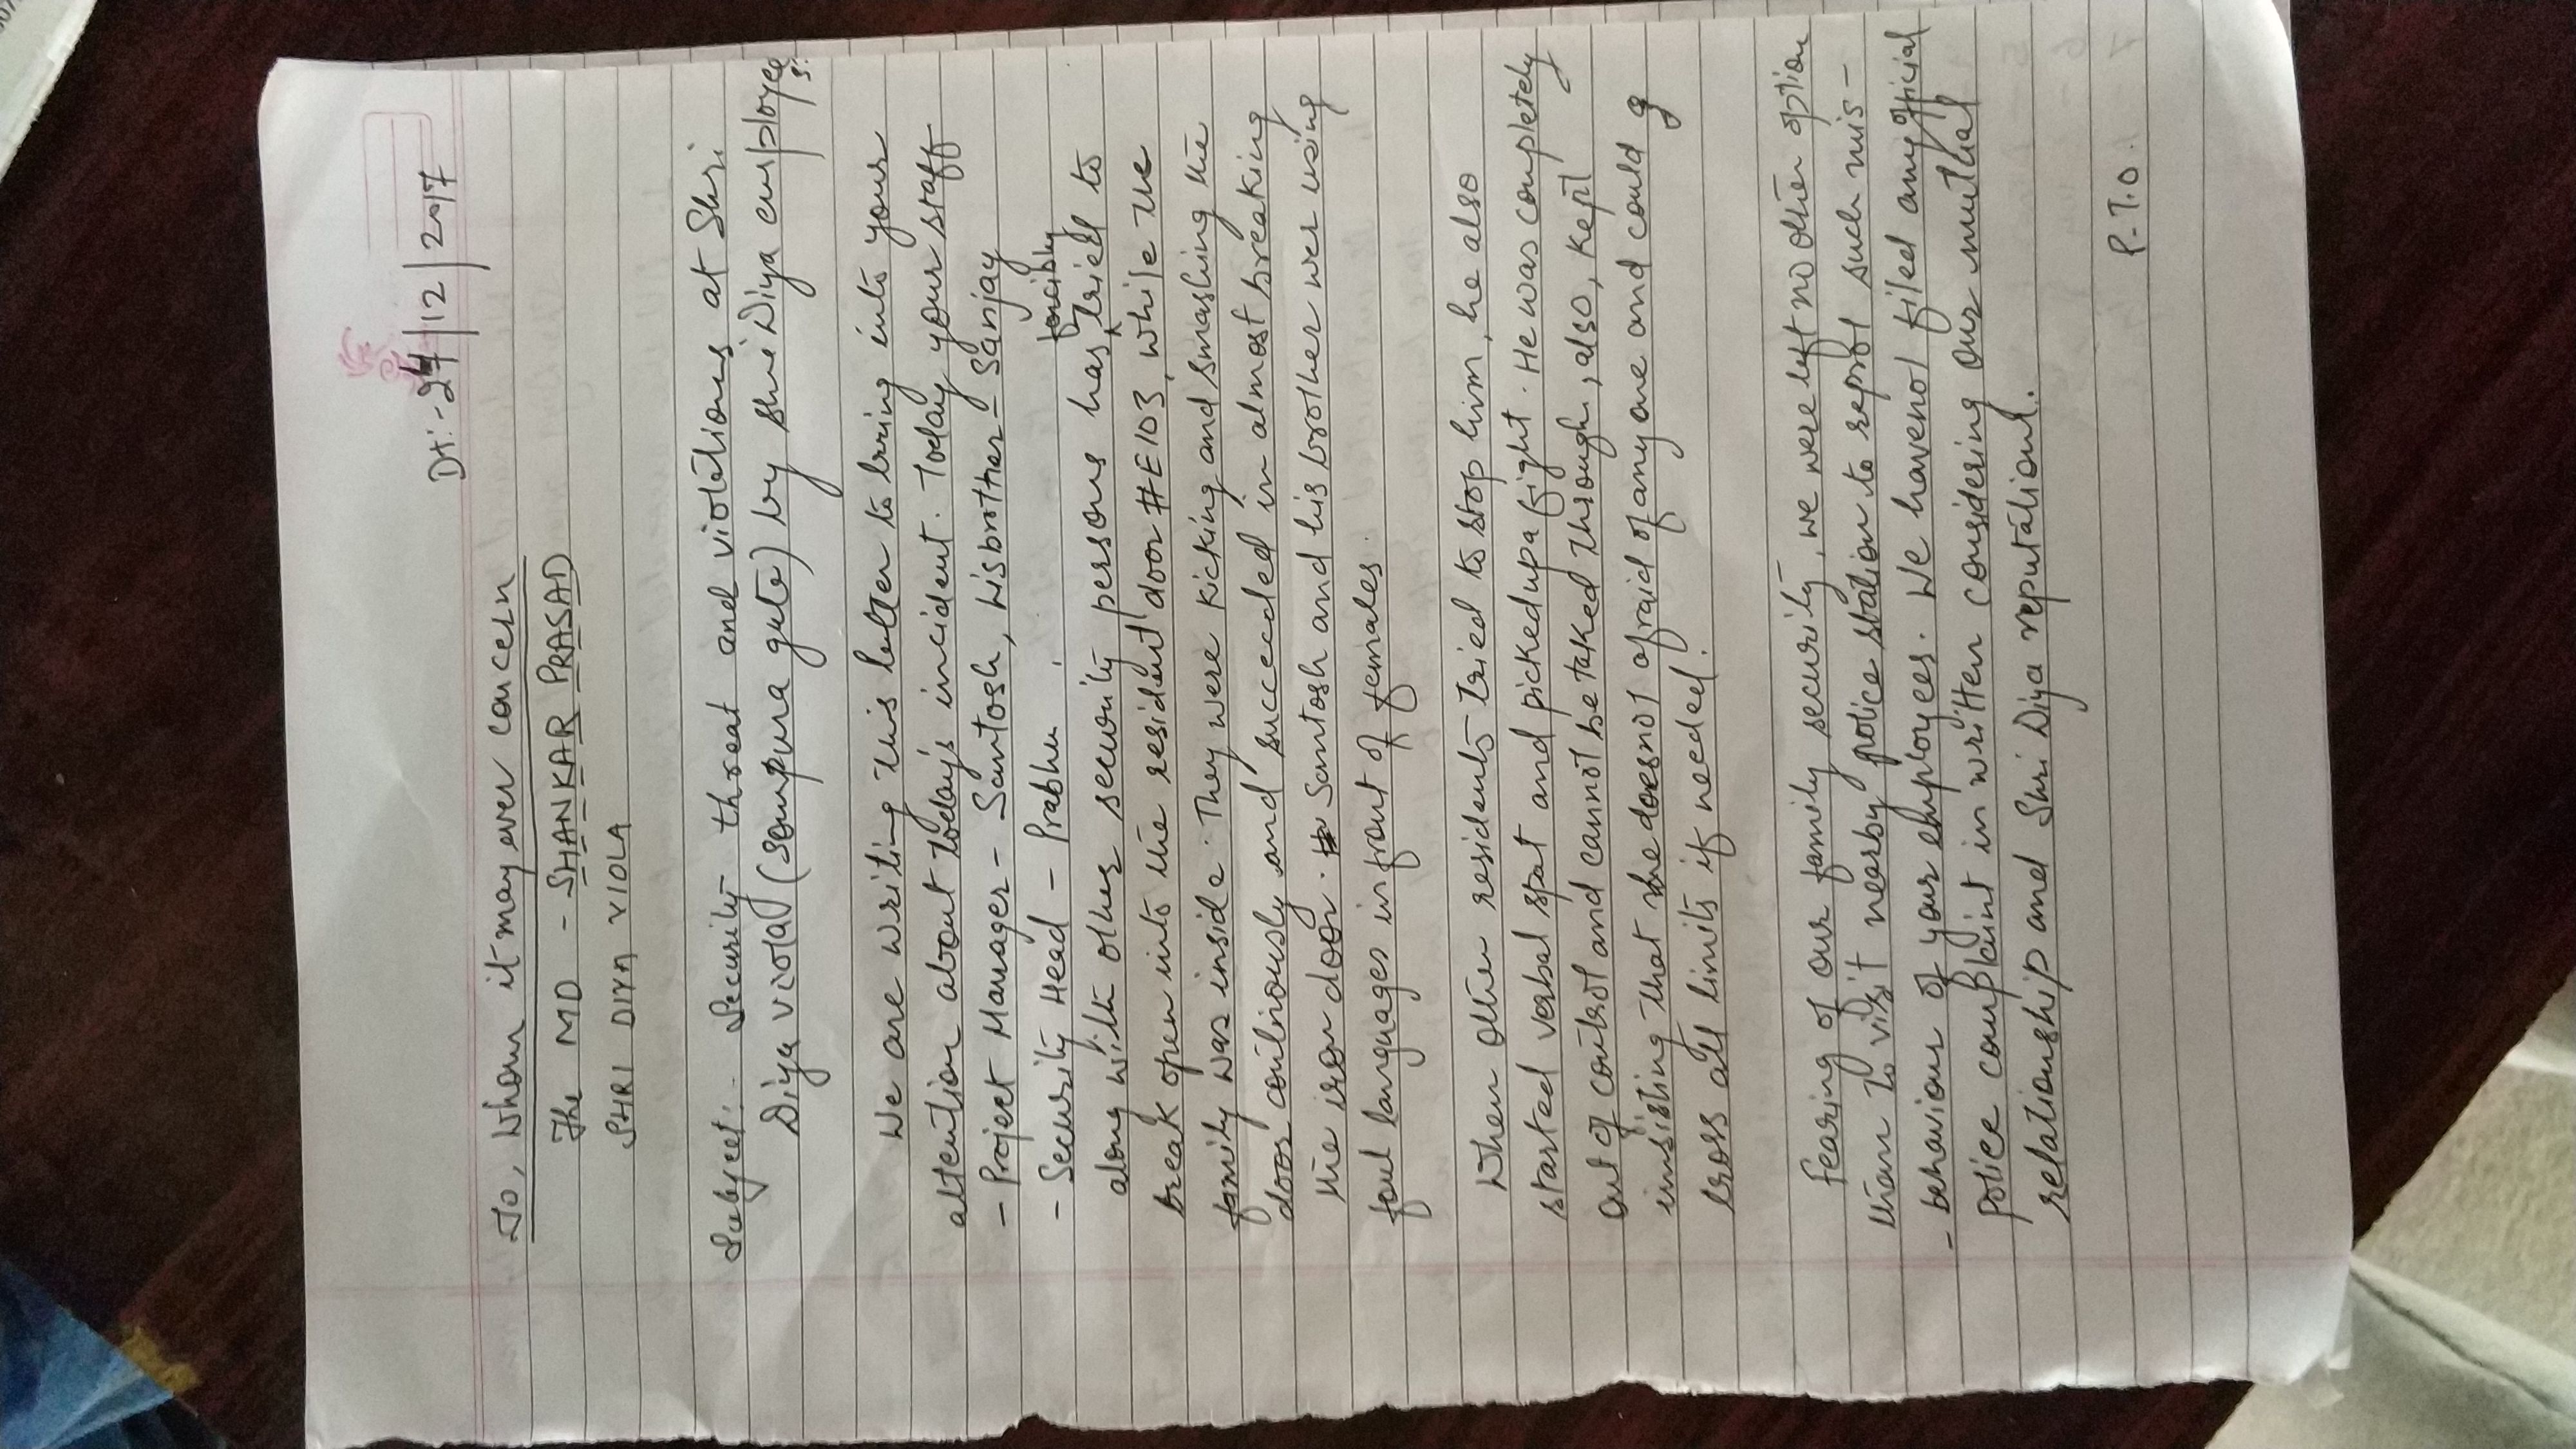 Dt:-24/12/2017
To, Whom it may ever concern
The MD - SHANKAR PRASAD
SHRI DIYA VIOLA
Subject:- Security threat and violations at Shri
Diya viola (Sompura gate) by Shri Diya employees.
We are writing this letter to bring into your
attention about today's incident. Today your staff
- Project Manager - Santosh, hisbrother - Sanjay
- Security Head - Prabhu .
along with other security persons has forcibly tried to
break open into the resident door #E103, while the
family was inside. They were kicking and smashing the
door continously and succeeded in almost breaking
the iron door. Santosh and his brother wer using
foul languages infront of females.
When other residents tried to stop him, he also
started verbal spat and pickedup a fight. He was completely
out of control and cannot be taked through, also, kept
insisting that he doesnot afraid of anyone and could
cross all limits if needed.
Fearing of our family security, we were left no other option
than to visit nearby police station to reprot such mis-
- behaviour of your employees. We havenot filed any official
police complaint in written considering our mutual
relationship and Shri Diya reputation.
P.T.O.